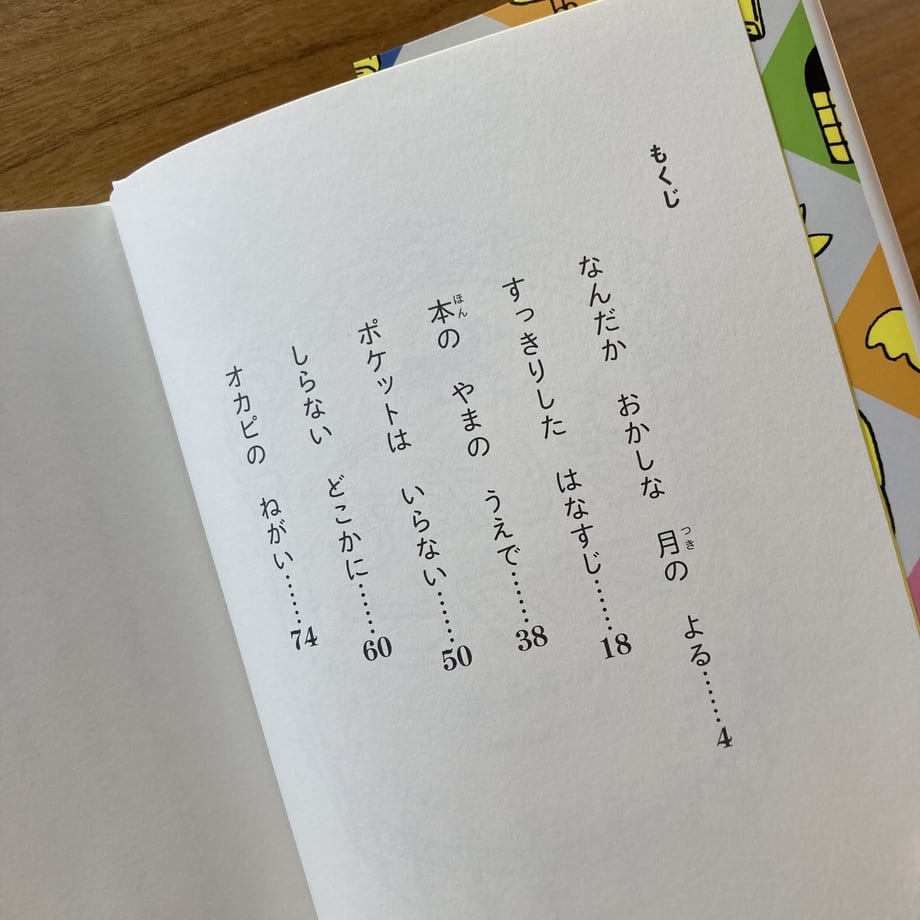 もくじ
なんだか おかしな 月の よる……4
すっきりした はなすじ……18
本の やまの うえで……38
ポケットは いらない……50
しらない どこかに……60
オカピの ねがい……74
つき
ほん